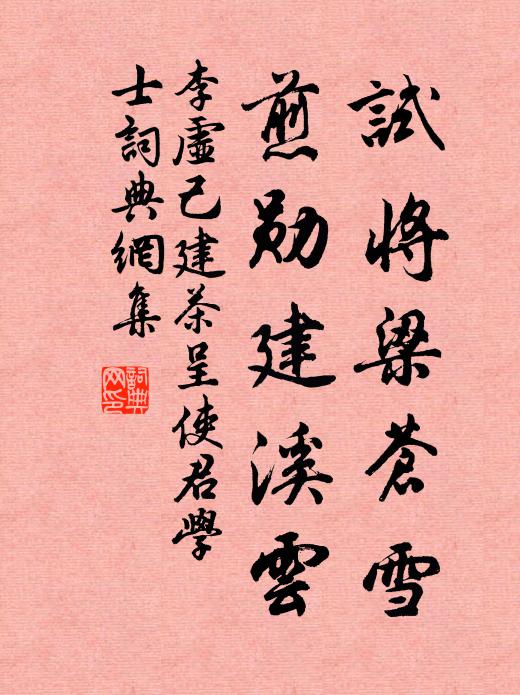 試將梁苑雪
煎勛建溪雲
李虛己建茶呈使君學
士詞典網集
詞典
网印